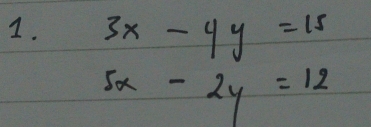 1. 3x - 4y = 15
5x - 2y = 12